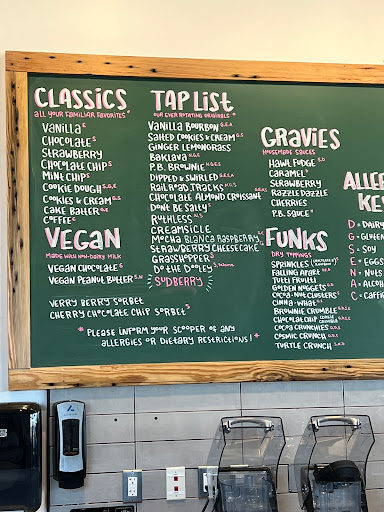 CLASSICS
ALL YOUR FAMILIAR FAVORITES *
VANILLA S
CHOCOLATE S
STRAWBERRY
CHOCOLATE CHIP S
MINT CHIP S
COOKIE DOUGH S,G,E
COOKIES & CREAM G,S
CAKE BATTER G,E
COFFEE C
VEGAN
MADE WITH NON-DAIRY MILK
VEGAN CHOCOLATE S
VEGAN PEANUT BUTTER S,N
VERRY BERRY SORBET
CHERRY CHOCOLATE CHIP SORBET S
TAP LIST
OUR EVER ROTATING ORIGINALS *
VANILLA BOURBON
SALTED COOKIES & CREAM G,S
GINGER LEMONGRASS
BAKLAVA
P.B. BROWNIE
DIPPED & SWIRLED
RAILROAD TRACKS
CHOCOLATE ALMOND CROISSANT
DON'T BE SALTY
RUTHLESS
CREAMSICLE
MOCHA BIANCA RASPBERRY
STRAWBERRY CHEESECAKE
GRASSHOPPER
DO THE DOOLEY
SUDBERRY
GRAVIES
HOUSEMADE SAUCES
HAWT FUDGE S,D
CARAMEL
STRAWBERRY
RAZZLE DAZZLE
CHERRIES
P.B. SAUCE
FUNKS
DRY TOPPINGS
SPRINKLES
FALLING APART
TUTTI FRUITTI
GOLDEN NUGGETS
COCOA-NUT CLUSTERS
CINNA-WHAT
BROWNIE CRUMBLE
CHOCOLATE CHIP COOKIE CRUMBLE
COCOA CRUNCHIES
COSMIC CRUNCH
TURTLE CRUNCH
D = DAIRY
S = SOY
* PLEASE INFORM YOUR SCOOPER OF ANY
ALLERGIES OR DIETARY RESTRICTIONS! *